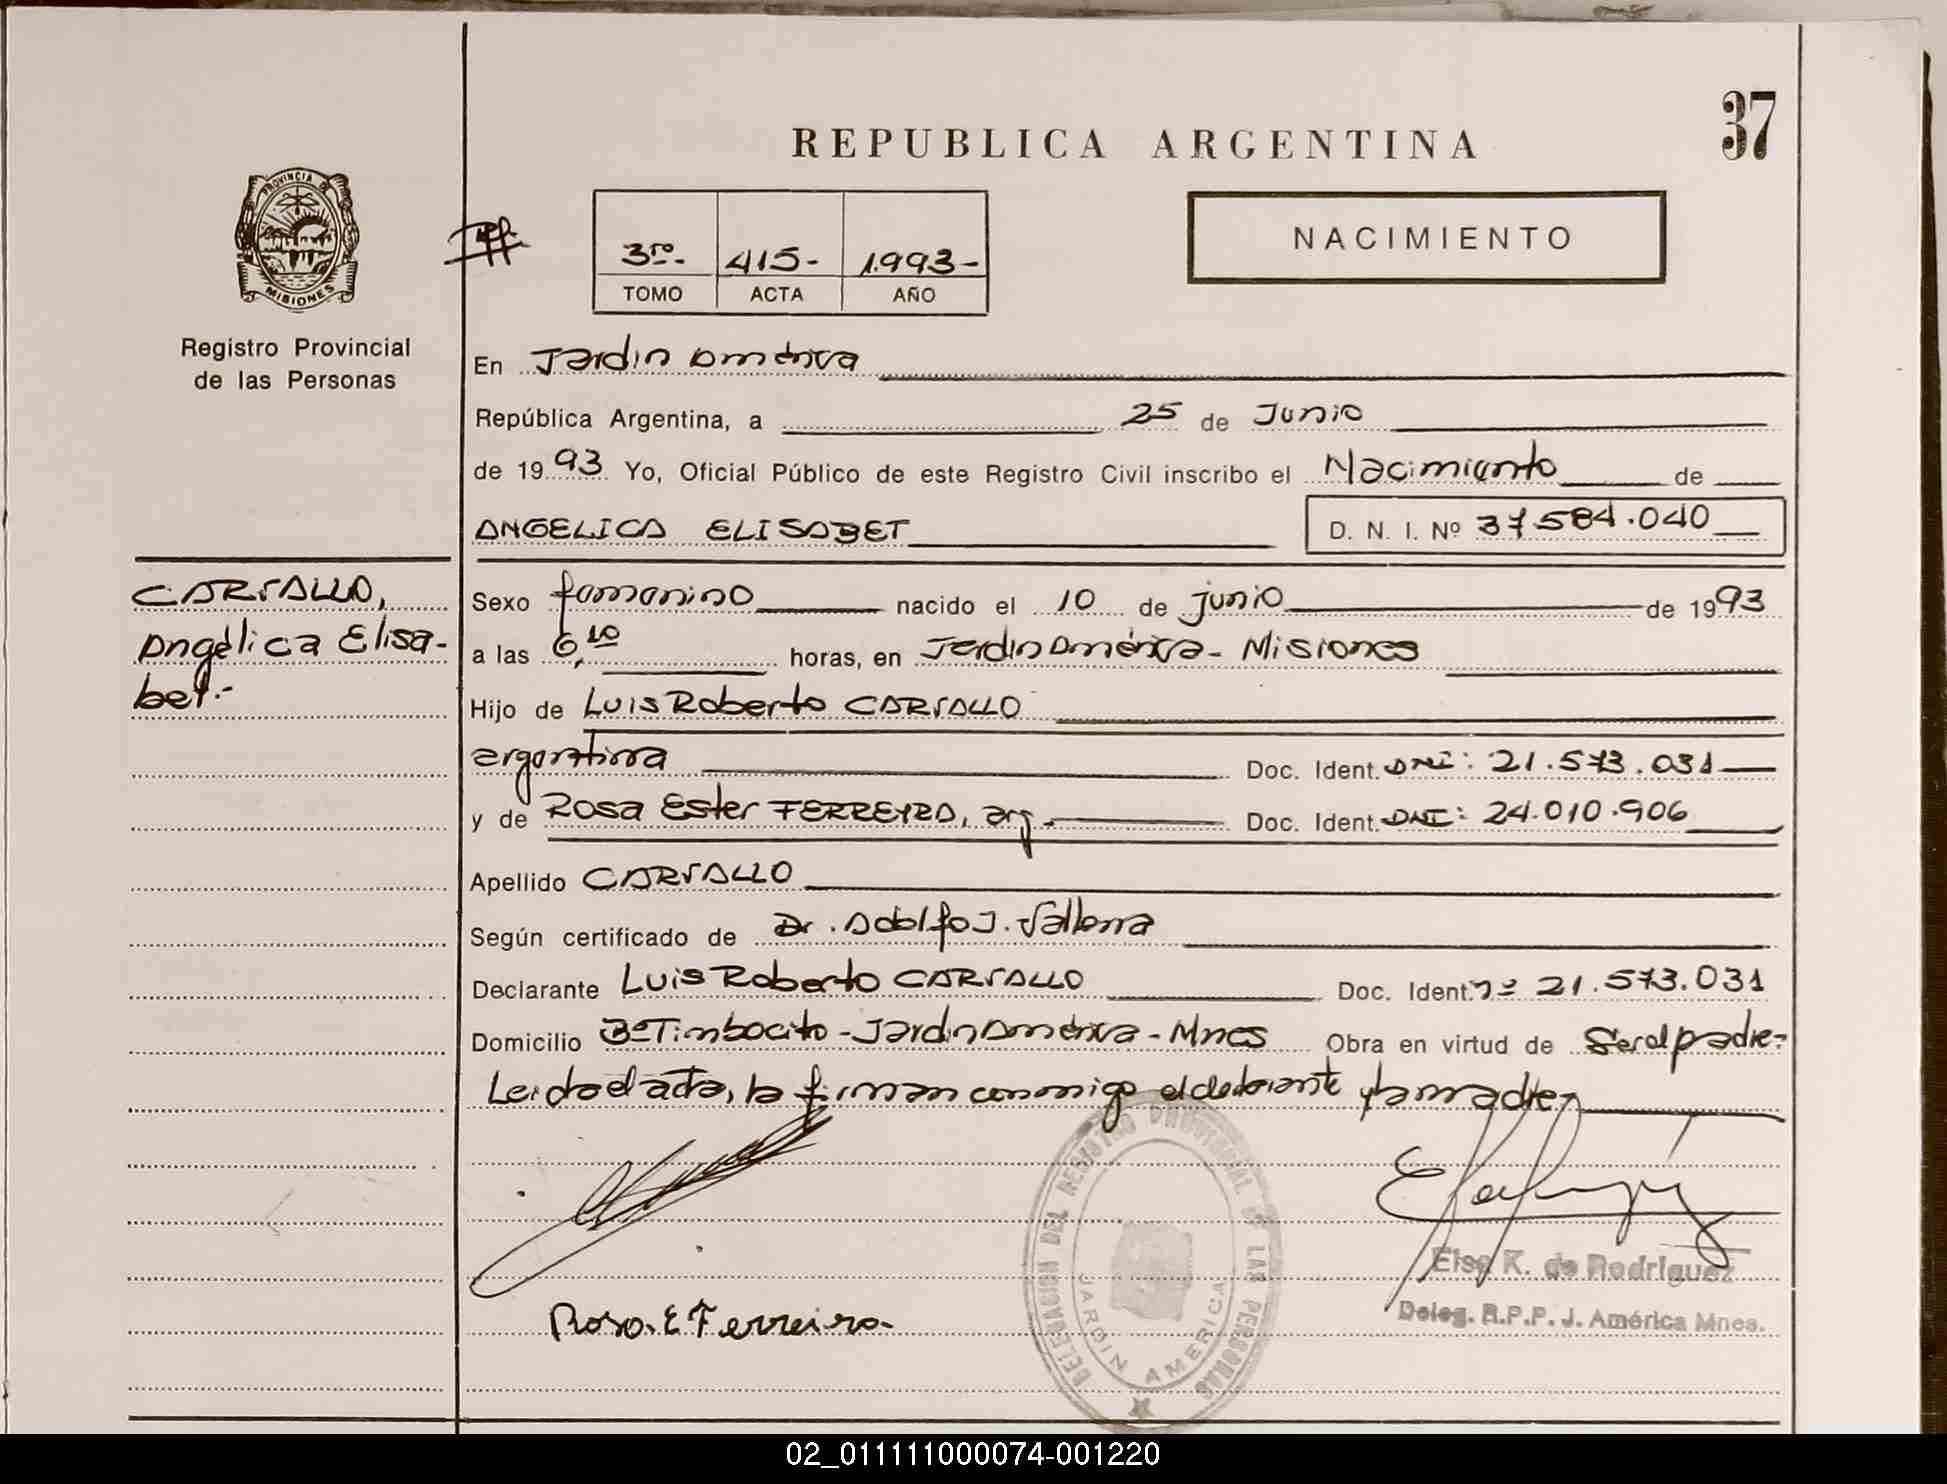 37
REPUBLICA ARGENTINA
PROVINCIA DE
MISIONES
Registro Provincial
de las Personas
3ro.- 415- 1.993-
TOMO ACTA AÑO
NACIMIENTO
En Jardin América
República Argentina, a 25 de Junio
de 1993 Yo, Oficial Público de este Registro Civil inscribo el Nacimiento de
ANGELICA ELISABET D. N. I. Nº 37584.040
CARVALLO,
Angélica Elisa-
bet.-
Sexo femenino nacido el 10 de junio de 1993
a las 6,10 horas, en Jardin América - Misiones
Hijo de Luis Roberto CARVALLO
argentina Doc. Ident. DNI: 21.573.031
y de Rosa Ester FERREYRA, arg. Doc. Ident. DNI: 24.010.906
Apellido CARVALLO
Según certificado de Dr. Adolfo J.
Declarante Luis Roberto CARVALLO Doc. Ident. nº 21.573.031
Domicilio Bº Timbocito - Jardin América - Mnes Obra en virtud de Ser el padre-
Leida el acta, la firman conmigo el declarante y la madre-
DELEGACION DEL REGISTRO PROVINCIAL DE LAS PERSONAS
JARDIN AMERICA
Elsa K. de Rodriguez
Deleg. R.P.P. J. América Mnes.
Rosa. E Ferreira-
02_011111000074-001220